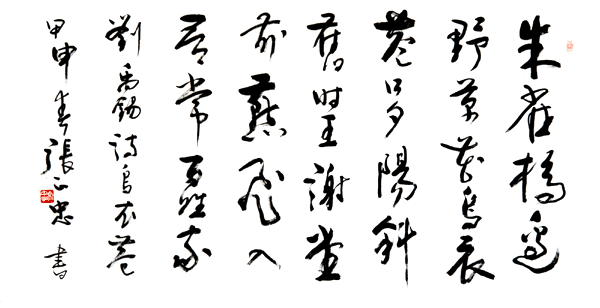 朱雀橋邊
野草花烏衣
巷口夕陽斜
舊時王謝堂
前燕飛入
尋常百姓家
劉禹錫詩烏衣巷
甲申春張正忠書